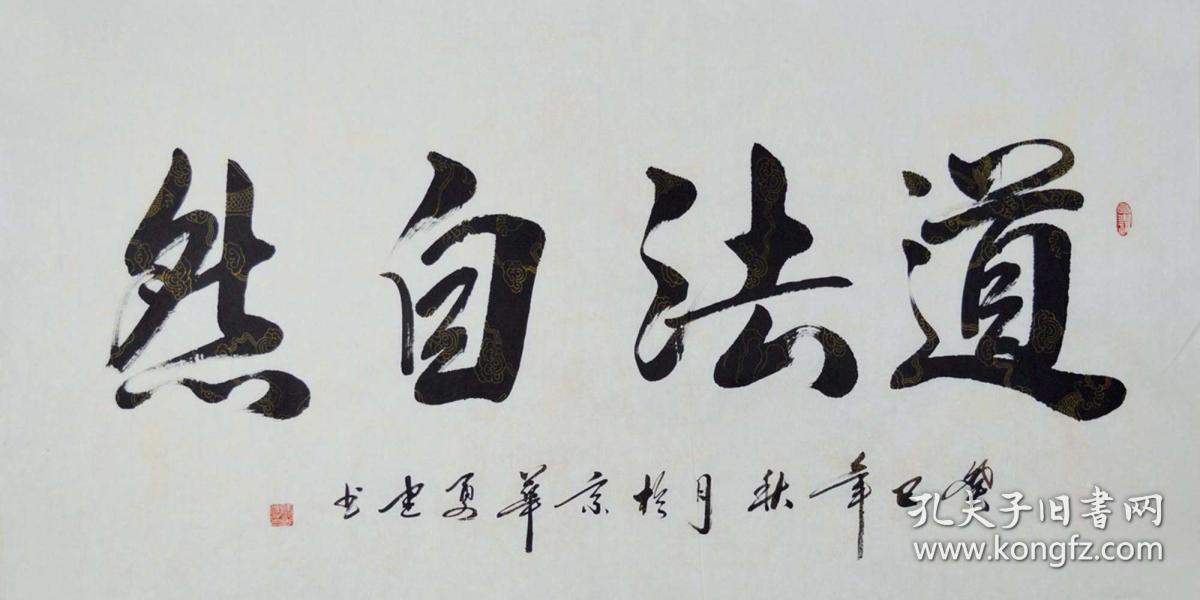 道法自然
癸巳年秋月於京華夏建书
孔夫子旧书网
www.kongfz.com